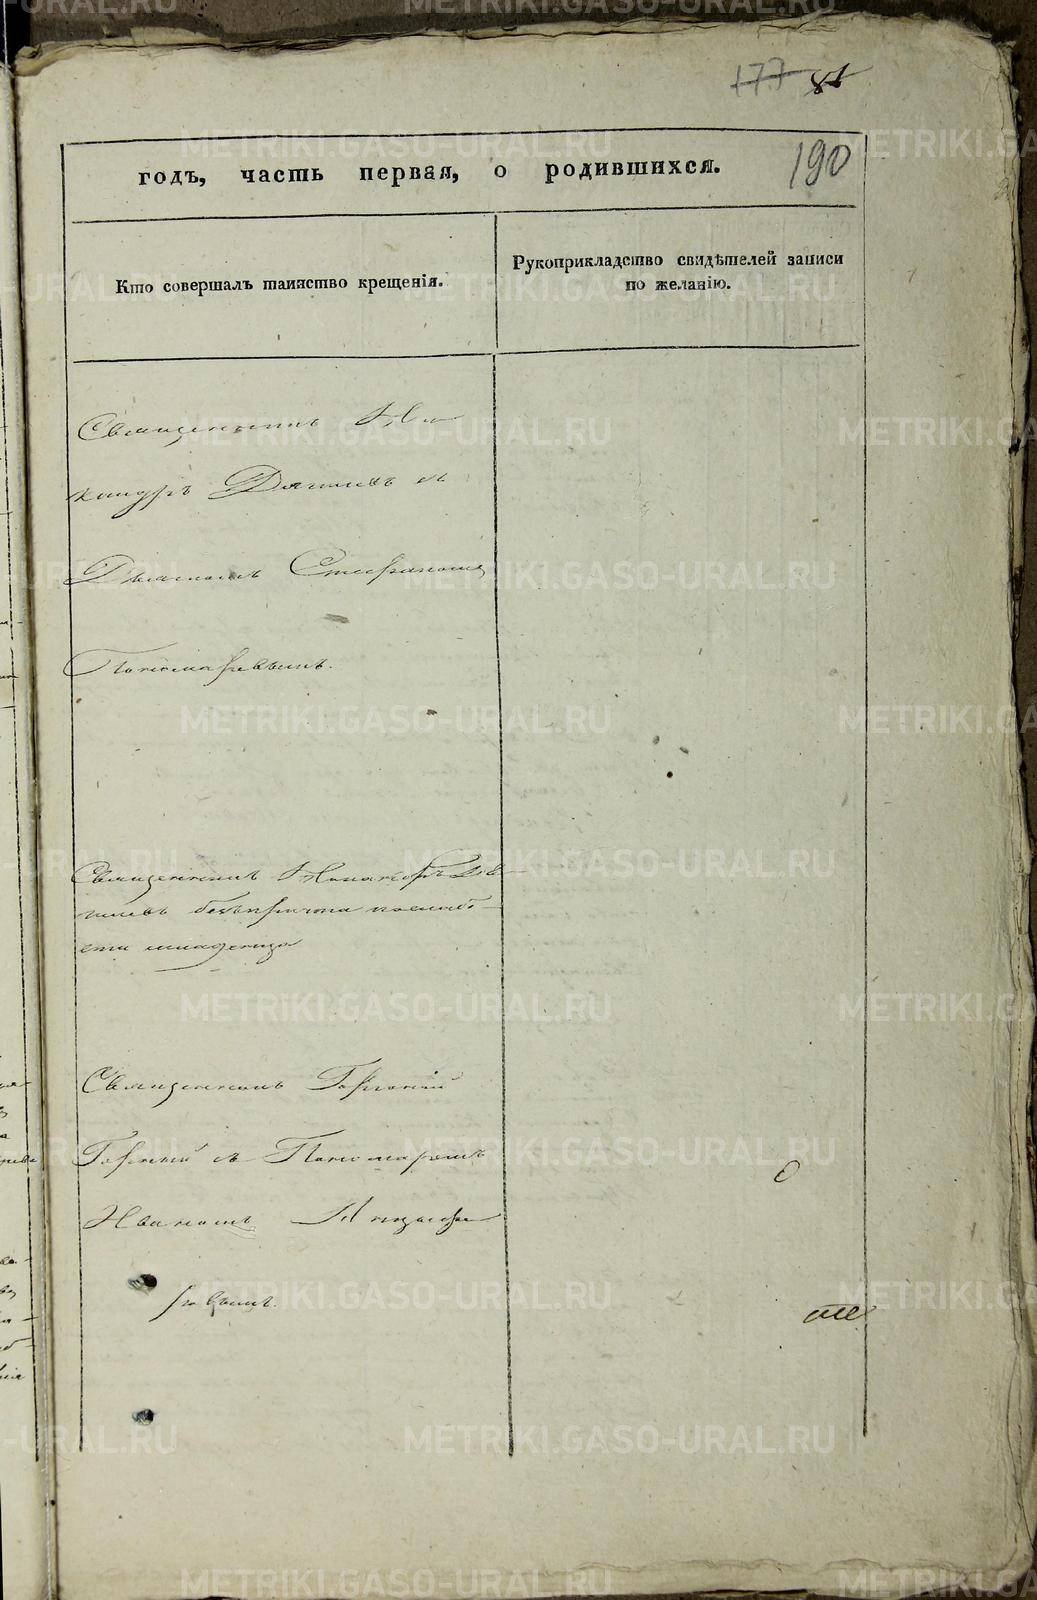 177 81
190
годъ, часть первая, о родившихся.
Кто совершалъ таинство крещенія.
Рукоприкладство свидѣтелей записи
по желанію.
Священникъ Ни
каноръ
Діакономъ Стефаномъ
Пономаревымъ.
Священникъ Никаноръ
безъ причта по слабо-
сти младенца
Священникъ Горгоній
съ Пономаремъ
Иваномъ
ревымъ.
METRIKI.GASO-URAL.RU